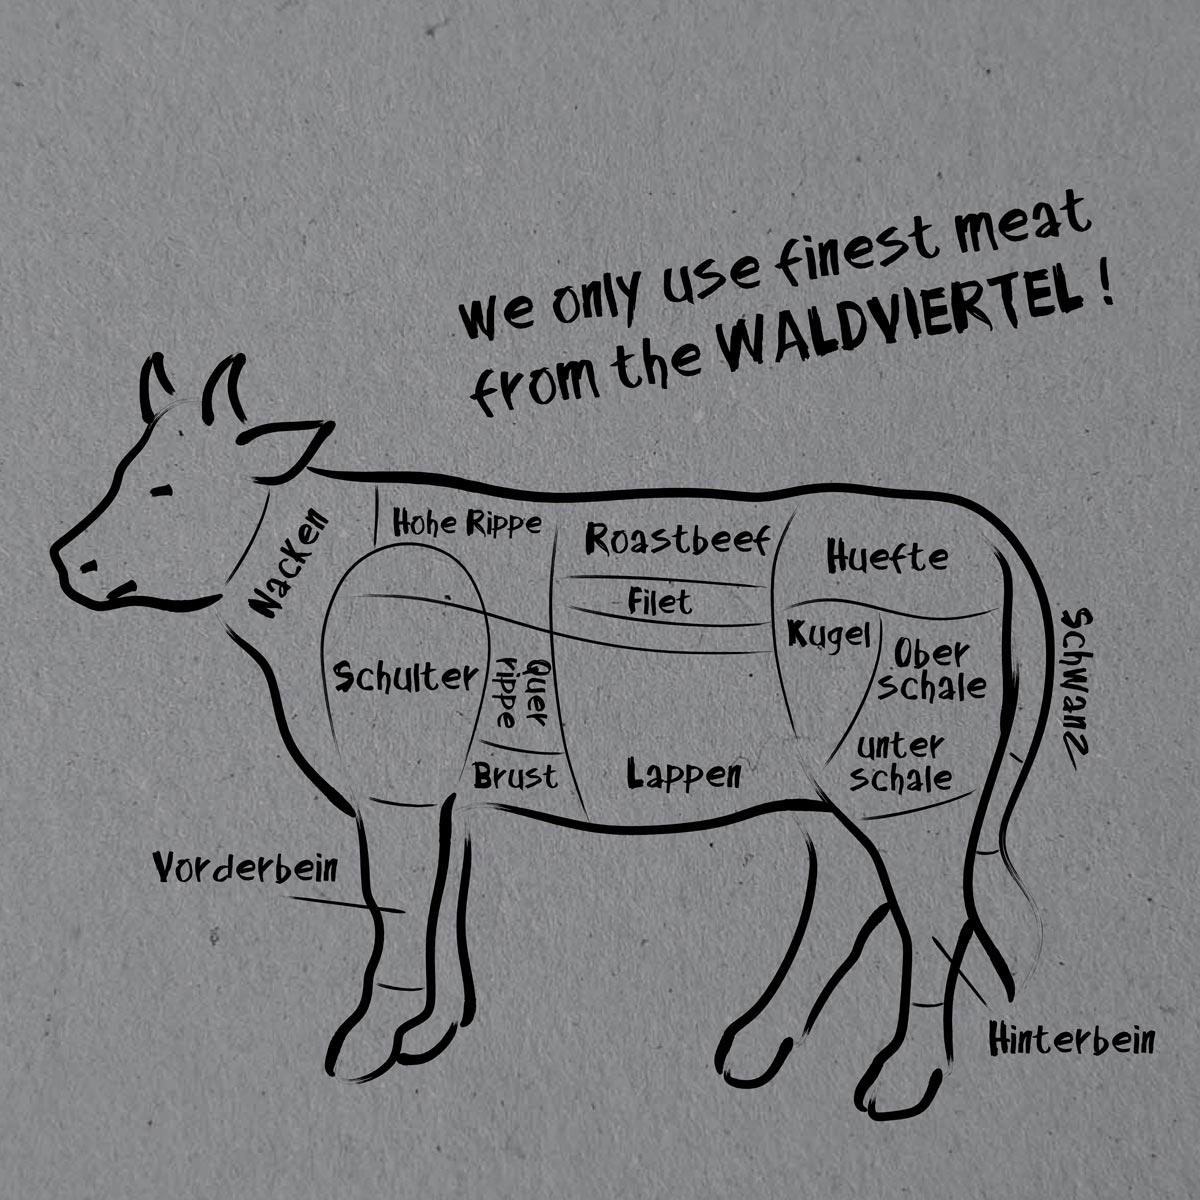 we only use finest meat
from the WALDVIERTEL!
Nacken
Hohe Rippe
Roastbeef
Filet
Huefte
Kugel
Ober
schale
unter
schale
Schwanz
Schulter
Quer
rippe
Brust
Lappen
Vorderbein
Hinterbein